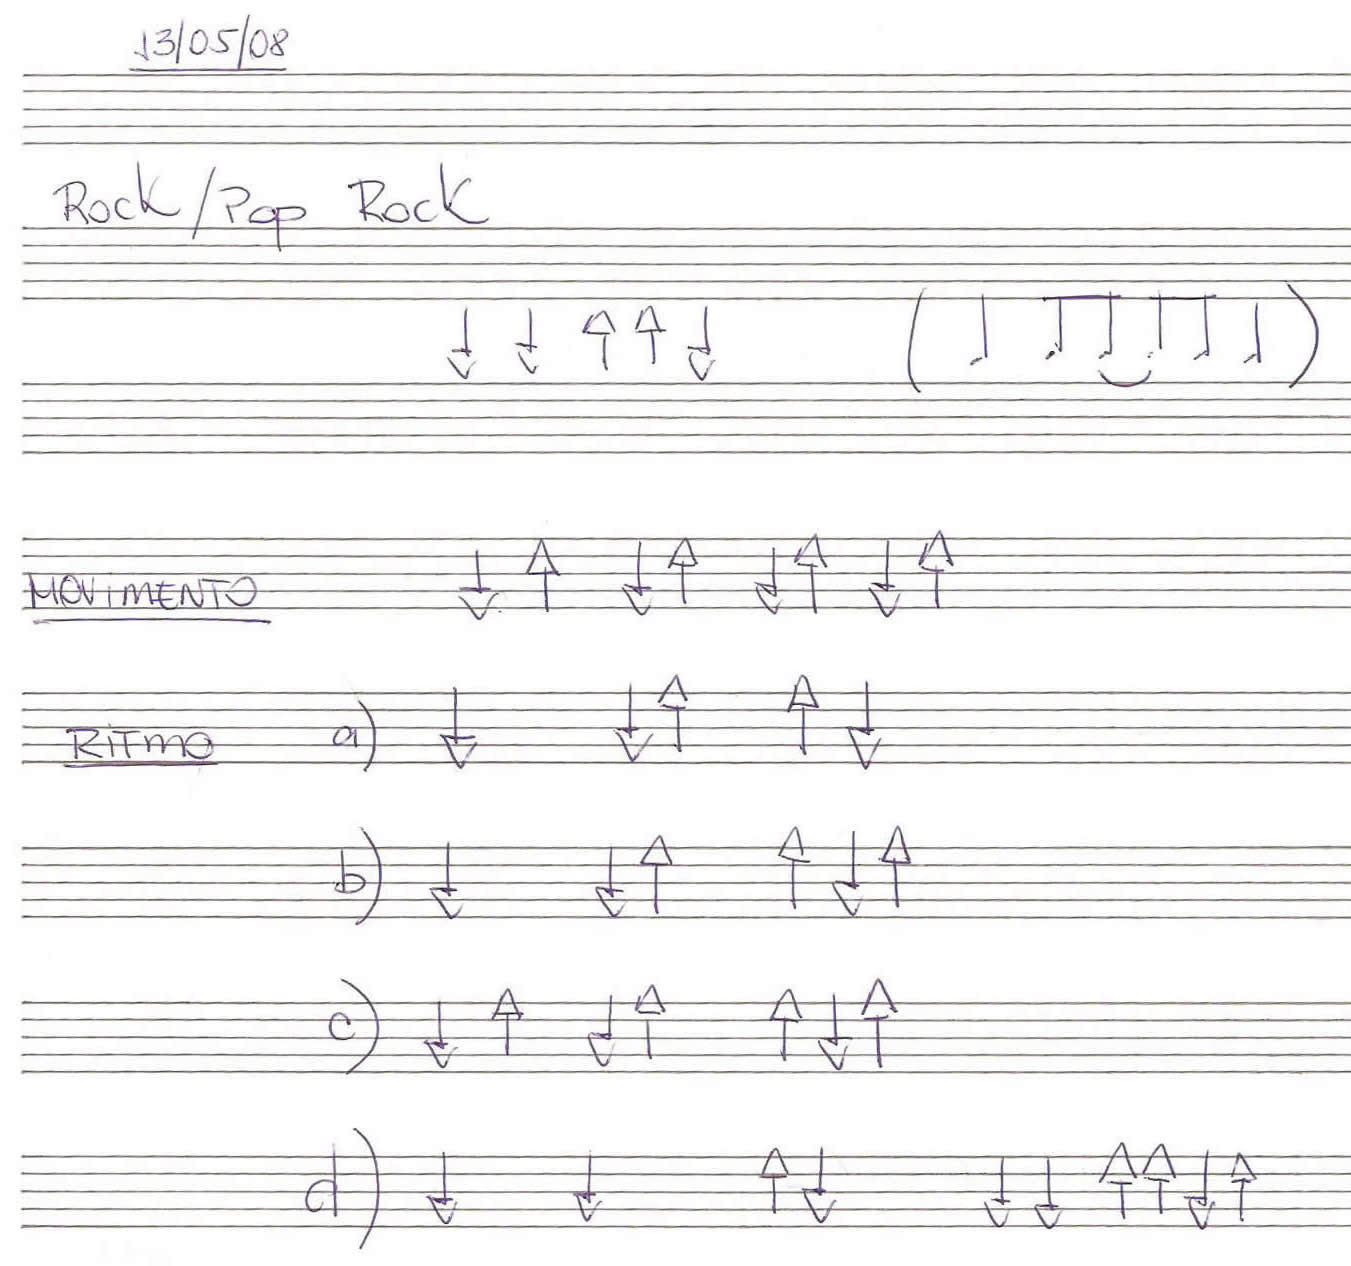 13/05/08
Rock/Pop Rock
↓ ↓ ↑ ↑ ↓ (♩ ♫ ♫ ♩)
MOVIMENTO ↓ ↑ ↓ ↑ ↓ ↑ ↓ ↑
RITMO a) ↓ ↓ ↑ ↑ ↓
b) ↓ ↓ ↑ ↑ ↓ ↑
c) ↓ ↑ ↓ ↑ ↑ ↓ ↑
d) ↓ ↓ ↑ ↓ ↓ ↓ ↑ ↑ ↓ ↑